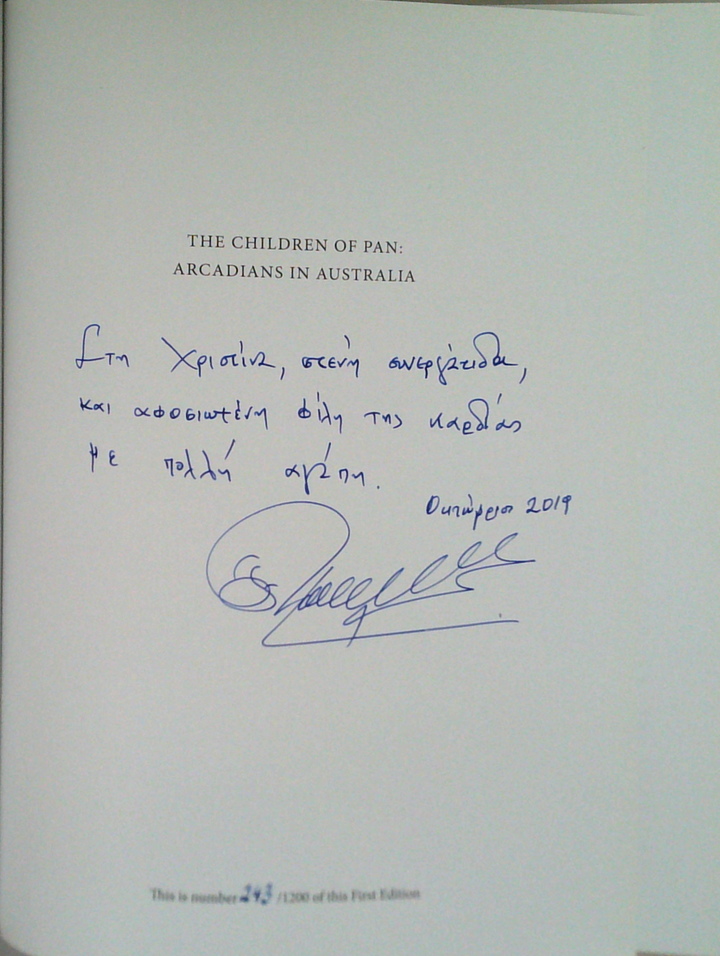 THE CHILDREN OF PAN:
ARCADIANS IN AUSTRALIA
Στη Χριστίνα, στενή συνεργάτιδα,
και αφοσιωμένη φίλη της καρδιάς
με πολλή αγάπη.
Οκτώβριος 2019
This is number 243 /1200 of this First Edition